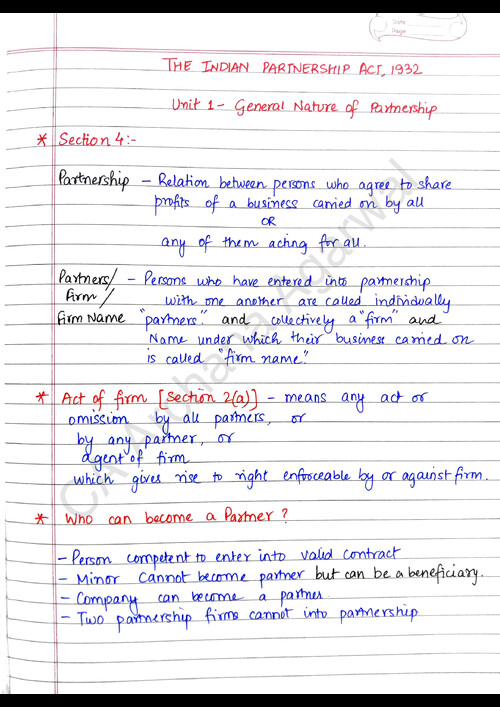 Date
Page
THE INDIAN PARTNERSHIP ACT, 1932
Unit 1 - General Nature of Partnership
* Section 4:-
Partnership - Relation between persons who agree to share
profits of a business carried on by all
OR
any of them acting for all.
Partners/ - Persons who have entered into partnership
Firm/ with one another are called individually
Firm Name "partners" and collectively a "firm" and
Name under which their business carried on
is called "firm name".
* Act of firm [Section 2(a)] - means any act or
omission by all partners, or
by any partner, or
agent of firm
which gives rise to right enforceable by or against firm.
* Who can become a Partner?
- Person competent to enter into valid contract
- Minor cannot become partner but can be a beneficiary.
- Company can become a partner
- Two partnership firms cannot into partnership
CA Archana Agarwal